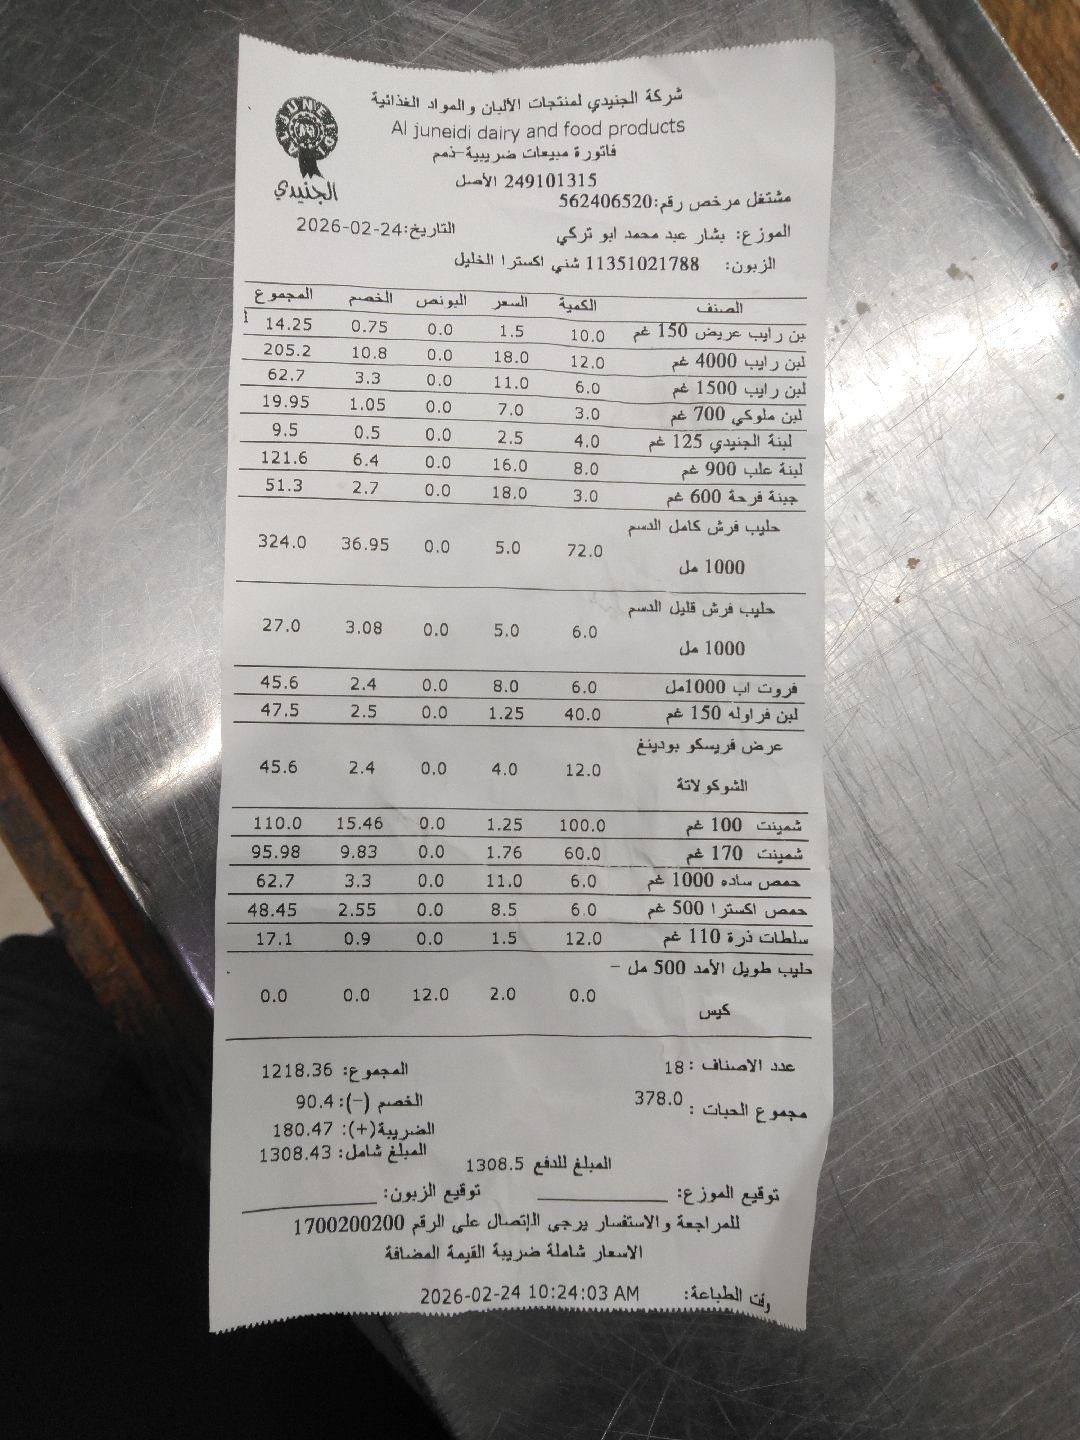 شركة الجنيدي لمنتجات الألبان والمواد الغذائية
Al juneidi dairy and food products
فاتورة مبيعات ضريبية-ذمم
249101315 الأصل
مشتغل مرخص رقم:562406520
الجنيدي
الموزع: بشار عبد محمد ابو تركي التاريخ:2026-02-24
الزبون: 11351021788 شني اكسترا الخليل
الصنف الكمية السعر البونص الخصم المجموع
بن رايب عريض 150 غم 10.0 1.5 0.0 0.75 14.25
لبن رايب 4000 غم 12.0 18.0 0.0 10.8 205.2
لبن رايب 1500 غم 6.0 11.0 0.0 3.3 62.7
لبن ملوكي 700 غم 3.0 7.0 0.0 1.05 19.95
لبنة الجنيدي 125 غم 4.0 2.5 0.0 0.5 9.5
لبنة علب 900 غم 8.0 16.0 0.0 6.4 121.6
جبنة فرحة 600 غم 3.0 18.0 0.0 2.7 51.3
حليب فرش كامل الدسم
1000 مل 72.0 5.0 0.0 36.95 324.0
حليب فرش قليل الدسم
1000 مل 6.0 5.0 0.0 3.08 27.0
فروت اب 1000مل 6.0 8.0 0.0 2.4 45.6
لبن فراوله 150 غم 40.0 1.25 0.0 2.5 47.5
عرض فريسكو بودينغ
الشوكولاتة 12.0 4.0 0.0 2.4 45.6
شمينت 100 غم 100.0 1.25 0.0 15.46 110.0
شمينت 170 غم 60.0 1.76 0.0 9.83 95.98
حمص ساده 1000 غم 6.0 11.0 0.0 3.3 62.7
حمص اكسترا 500 غم 6.0 8.5 0.0 2.55 48.45
سلطات ذرة 110 غم 12.0 1.5 0.0 0.9 17.1
حليب طويل الأمد 500 مل -
كيس 0.0 2.0 12.0 0.0 0.0
عدد الاصناف : 18 المجموع: 1218.36
مجموع الحبات : 378.0 الخصم (-): 90.4
الضريبة(+): 180.47
المبلغ شامل: 1308.43
المبلغ للدفع 1308.5
توقيع الموزع: ____________ توقيع الزبون: ____________
للمراجعة والاستفسار يرجى الإتصال على الرقم 1700200200
الاسعار شاملة ضريبة القيمة المضافة
وقت الطباعة: 2026-02-24 10:24:03 AM